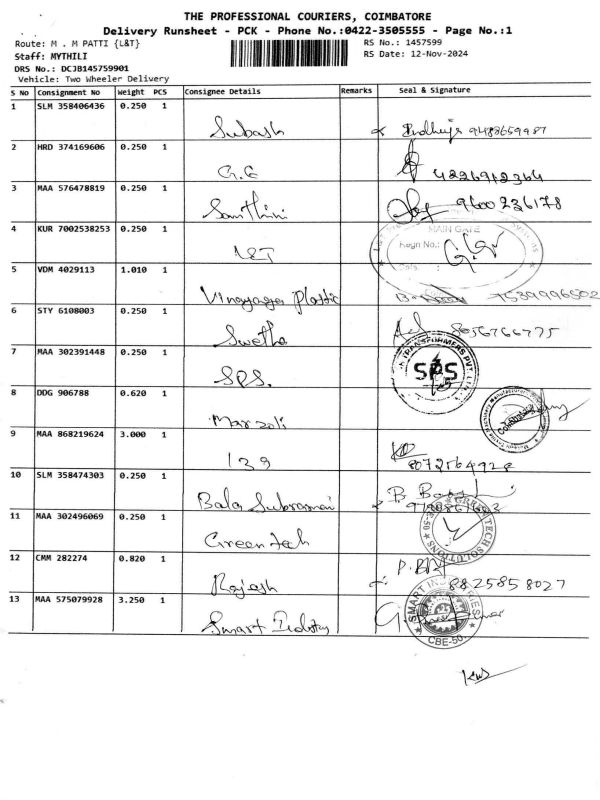 THE PROFESSIONAL COURIERS, COIMBATORE
Delivery Runsheet - PCK - Phone No.:0422-3505555 - Page No.:1
Route: M . M PATTI {L&T} RS No.: 1457599
Staff: MYTHILI RS Date: 12-Nov-2024
DRS No.: DCJB145759901
Vehicle: Two Wheeler Delivery
S No Consignment No Weight PCS Consignee Details Remarks Seal & Signature
1 SLM 358406436 0.250 1
Subash 9488659987
2 HRD 374169606 0.250 1
G.E 4226912364
3 MAA 576478819 0.250 1
Santhini 9600236178
4 KUR 7002538253 0.250 1 MAIN GATE
L&T Regn No.:
5 VDM 4029113 1.010 1
Vinayaga Plastic 7539996502
6 STY 6108003 0.250 1
Swetha 8056766775
7 MAA 302391448 0.250 1 TRANSFORMERS PVT. LTD.
SPS. SPS
8 DDG 906788 0.620 1
Marzoli
9 MAA 868219624 3.000 1
139 8072564928
10 SLM 358474303 0.250 1
Bala Subramani
11 MAA 302496069 0.250 1 GREEN TECH SOLUTIONS
Green tech
12 CMM 282274 0.820 1
Rajesh 8825858027
13 MAA 575079928 3.250 1 SMART INDUSTRIES
Smart Industry CBE-50.